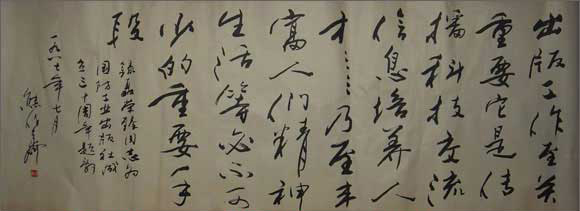 出版工作至关
重要它是传
播科技交流
信息培养人
才……乃至丰
富人们精神
生活等必不可
少的重要手
段
录聂荣臻同志为
国防工业出版社成
立三十周年题词
一九八七年七月